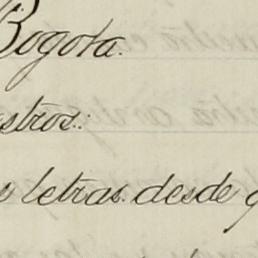 Bogota.
stros:
s letras desde q